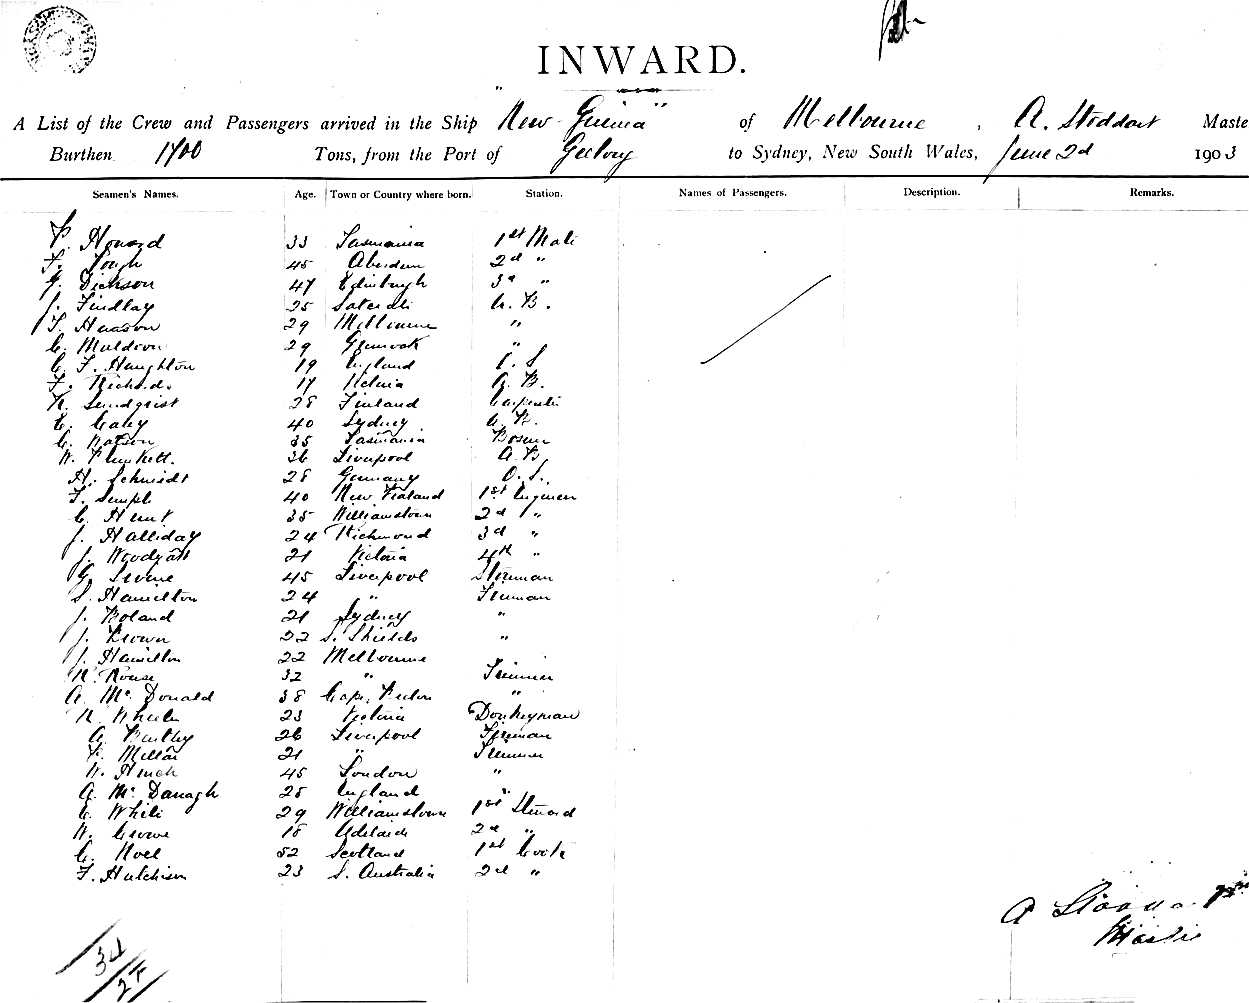 INWARD.
A List of the Crew and Passengers arrived in the Ship "New Guinea" of Melbourne, A. Stoddart Maste
Burthen 1700 Tons, from the Port of to Sydney, New South Wales, June 2d 1903
Seamen's Names. Age. Town or Country where born. Station. Names of Passengers. Description. Remarks.
Howard 33 Tasmania 1st Mate
45 Aberdeen 2d "
Dickson 47 Edinburgh 3d "
J. Findlay 25 A. B.
29 Melbourne "
C. Muldoon 29 "
C. F. Haughton 19 England
F. Richards 17 A. B.
Lundqvist 28 Finland Carpenter
40 Sydney
C. Watson 35 Tasmania Bosun
W. Plunkett. 36 Liverpool A B,
H. Schmidt 28 Germany O. S.
F. Semple 40 New Zealand 1st Engineer
C. Hunt 35 Williamstown 2d "
J. Halliday 24 Richmond 3d "
J. Woodyatt 21 Victoria 4th "
G. 45 Liverpool
S. Hamilton 24 " Fireman
J. Boland 21 Sydney "
J. Brown 22 S. Shields "
J. Hamilton 22 Melbourne
W. Rouse 32 " Trimmer
A. McDonald 38 Cape Breton "
23 Victoria Donkeyman
A. 26 Liverpool Fireman
Millar 21 " Trimmer
W. Hinch 45 London "
A. McDanagh 28 England "
E. White 29 Williamstown 1st Steward
W. Crowe 18 Adelaide 2d "
C. Noel 52 Scotland 1st Cook
F. Hutchison 23 S. Australia 2d "
A
Master
34